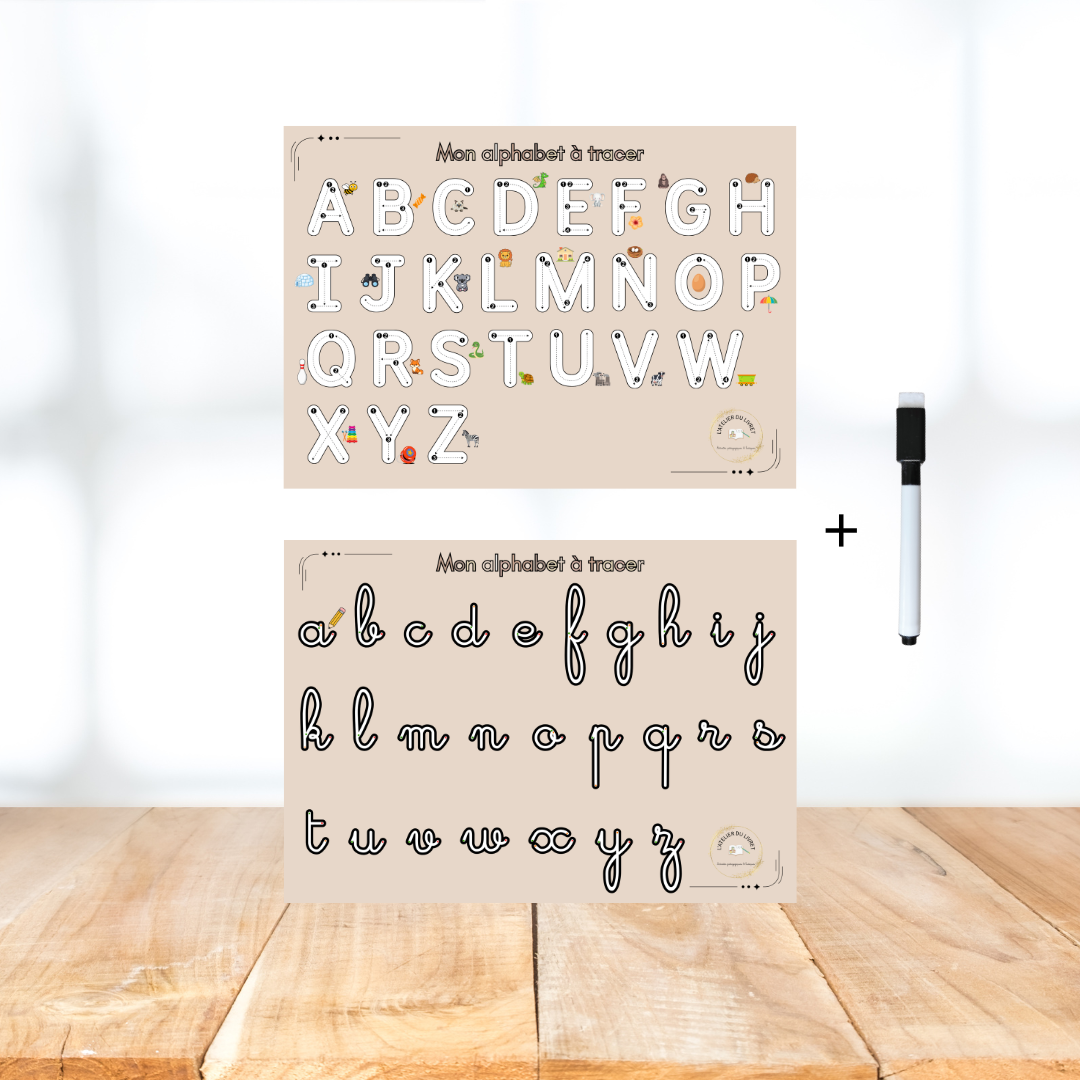 Mon alphabet à tracer
A B C D E F G H
I J K L M N O P
Q R S T U V W
X Y Z
L'ATELIER DU LIVRET
+
Mon alphabet à tracer
a b c d e f g h i j
k l m n o p q r s
t u v w x y z
L'ATELIER DU LIVRET